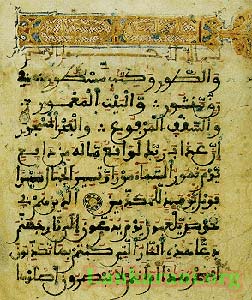 والطور وكتب مسطور في
رق منشور والبيت المعمور
والسقف المرفوع والبحر المسجور
إن عذاب ربك لواقع ماله من دافع
يوم تمور السماء مورا وتسير الجبال
سيرا فويل يومئذ للمكذبين الذين هم في
خوض يلعبون يوم يدعون إلى نار جهنم
دعا هذه النار التي كنتم بها تكذبون
أفسحر هذا أم أنتم لا تبصرون اصلوها